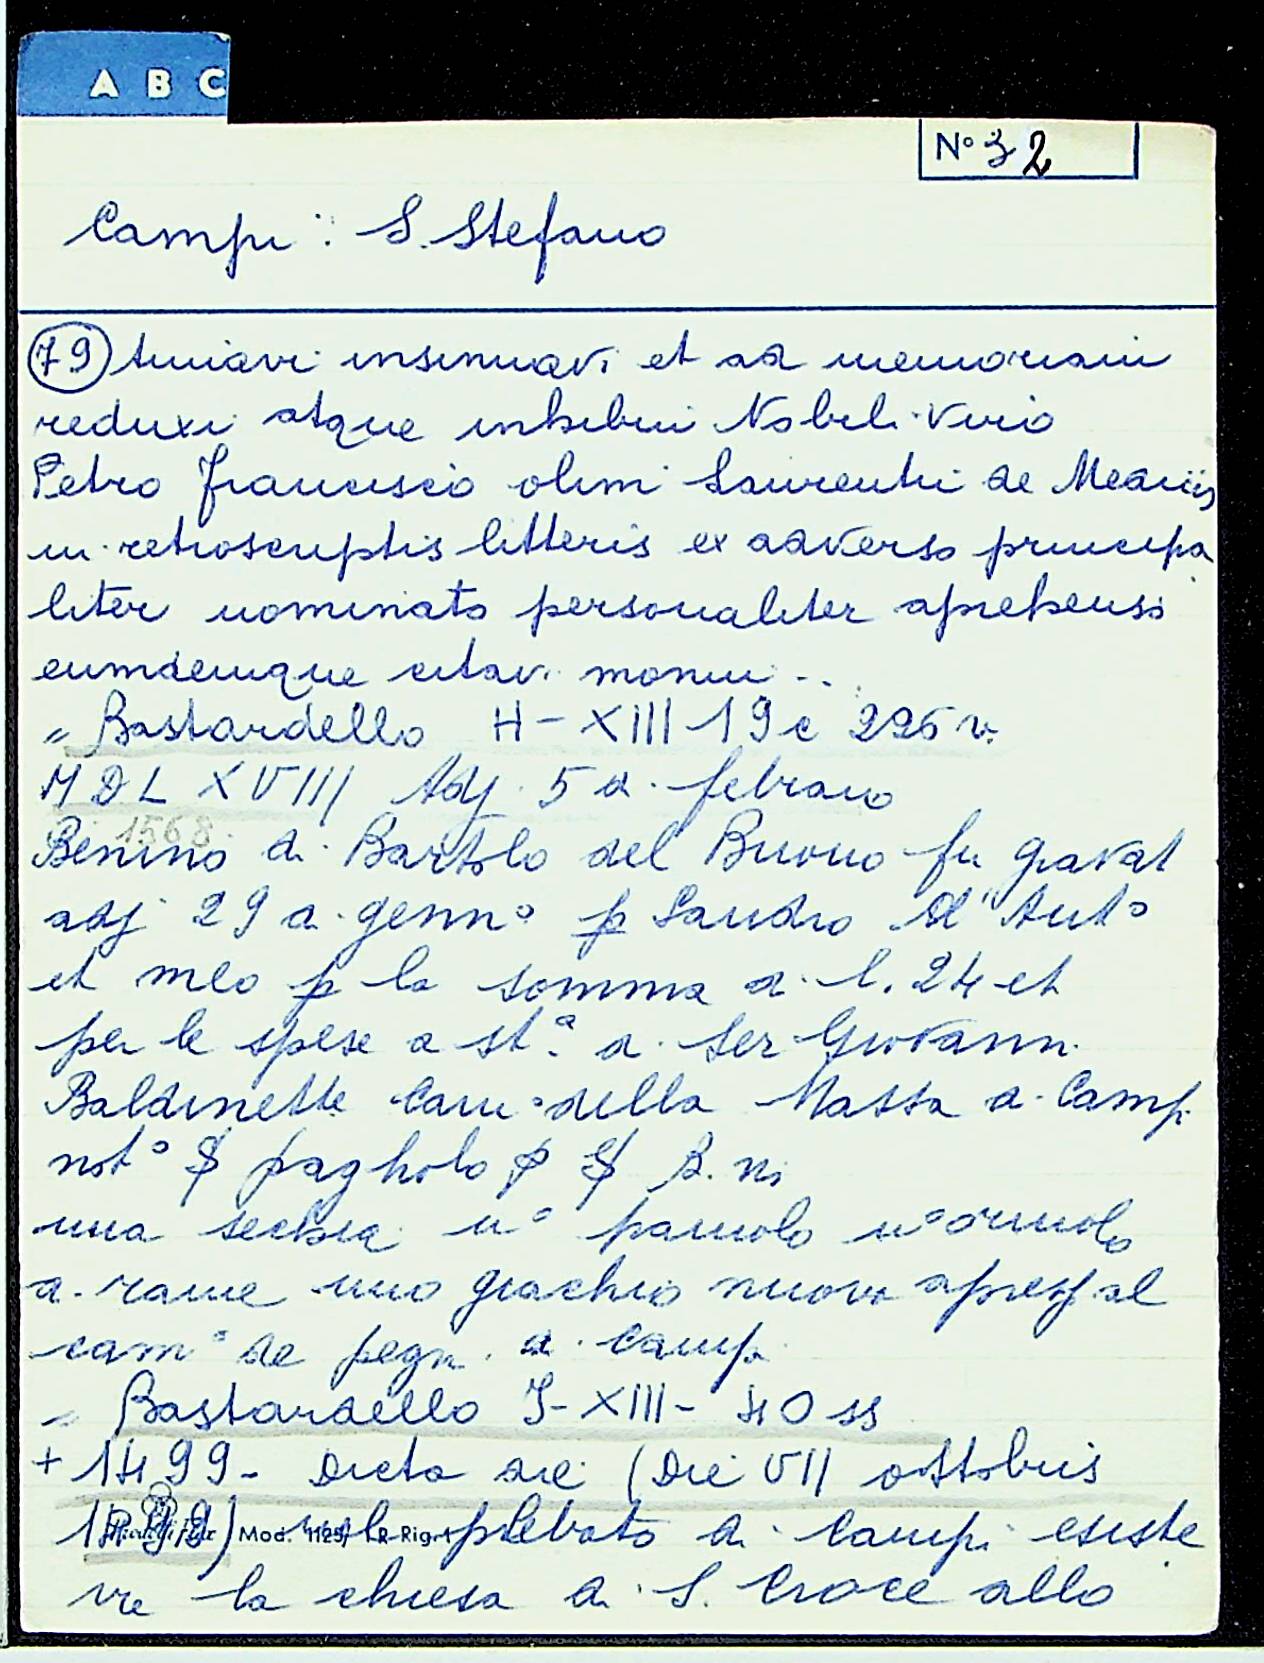 A B C
N° 32
Campi: S. Stefano
79 timavi insinuavi et ad memoriam
reduxi atque inhibui Nobili Viro
Petro Francisco olim Laurentii de Mediis
in retroscriptis litteris ex adverso principa
liter nominato personaliter aprehenso
eumdemque citavi monui ..
" Bastardello H-XIII 19 c 226 v.
MDLXVIII Adj 5 di febraio
1568
Benino di Bartolo del Buono fu gravat
adj 29 di genn° p Sandro d' Ant°
et meo p la somma di l. 24 et
per le spese a st.ª di Ser Giovann
Baldinette Cam° della Massa di Campi
not° pagholo B. ni
una sechia n° paiuolo n° orciuolo
di rame uno giachio nuovo apresso al
cam° de pegni di Campi
" Bastardello I-XIII- 40 ss
+ 1499- Dicta die (Die VII ottobris
1499) nel plebato di Campi esiste
Mod. 1125 R-Rig.
va la chiesa di S. Croce allo